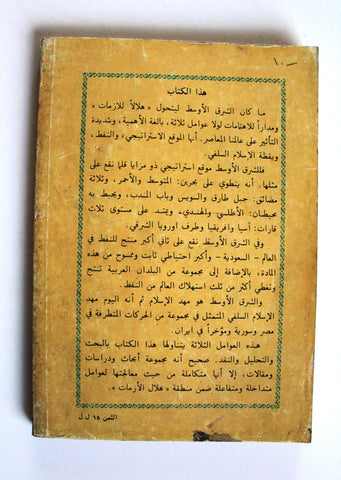 ١٠ـ
هذا الكتاب
ما كان الشرق الأوسط ليتحول «هلالاً للازمات»
ومداراً للاهتمامات لولا عوامل ثلاثة، بالغة الأهمية، وشديدة
التأثير على عالمنا المعاصر. أنها الموقع الاستراتيجي، والنفط،
ويقظة الإسلام السلفي.
فللشرق الأوسط موقع استراتيجي ذو مزايا قلما نقع على
مثلها. أنه ينطوي على بحرين: المتوسط والأحمر، وثلاثة
مضائق: جبل طارق والسويس وباب المندب، ويحيط به
محيطان: الأطلسي والهندي، ويمتد على مستوى ثلاث
قارات: آسيا وافريقيا وطرف اوروبا الشرقي.
وفي الشرق الأوسط نقع على ثاني أكبر منتج للنفط في
العالم - السعودية - وأكبر احتياطي ثابت وممسوح من هذه
المادة، بالإضافة إلى مجموعة من البلدان العربية تنتج
وتغطي أكثر من ثلث استهلاك العالم من النفط.
والشرق الأوسط هو مهد الإسلام ثم أنه اليوم مهد
الإسلام السلفي المتمثل في مجموعة من الحركات المتطرفة في
مصر وسورية ومؤخراً في ايران.
هذه العوامل الثلاثة يتناولها هذا الكتاب بالبحث
والتحليل والنقد. صحيح أنه مجموعة أبحاث ودراسات
ومقالات، إلا أنها متكاملة من حيث معالجتها لعوامل
متداخلة ومتفاعلة ضمن منطقة «هلال الأزمات».
الثمن ١٥ ل.ل